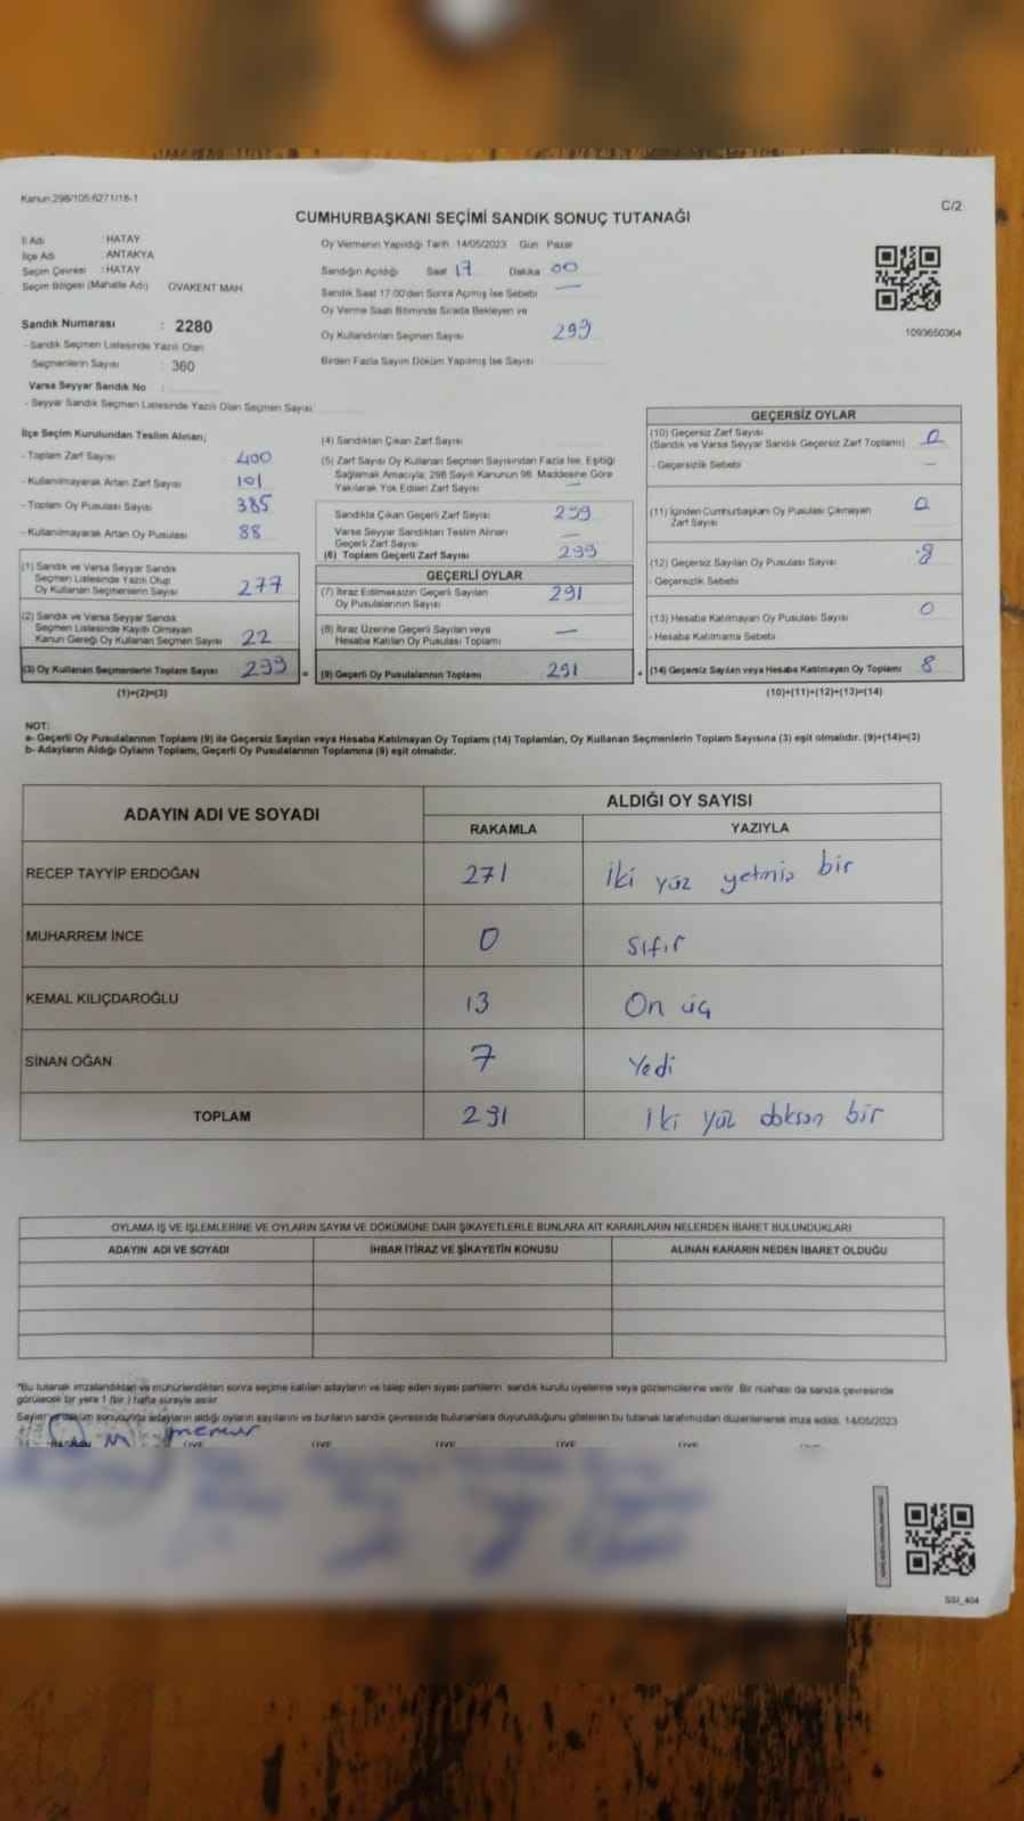 Kanun:298/105;6271/18-1
C/2
CUMHURBAŞKANI SEÇİMİ SANDIK SONUÇ TUTANAĞI
İl Adı : HATAY
İlçe Adı : ANTAKYA
Seçim Çevresi : HATAY
Seçim Bölgesi (Mahalle Adı) OVAKENT MAH
Sandık Numarası : 2280
- Sandık Seçmen Listesinde Yazılı Olan
Seçmenlerin Sayısı : 360
Varsa Seyyar Sandık No :
- Seyyar Sandık Seçmen Listesinde Yazılı Olan Seçmen Sayısı:
Oy Vermenin Yapıldığı Tarih 14/05/2023 Gün Pazar
Sandığın Açıldığı Saat 17 Dakika 00
Sandık Saat 17:00'den Sonra Açılmış İse Sebebi —
Oy Verme Saati Bitiminde Sırada Bekleyen ve
Oy Kullandırılan Seçmen Sayısı 299
Birden Fazla Sayım Döküm Yapılmış İse Sayısı
1093650364
İlçe Seçim Kurulundan Teslim Alınan;
- Toplam Zarf Sayısı 400
- Kullanılmayarak Artan Zarf Sayısı 101
- Toplam Oy Pusulası Sayısı 385
- Kullanılmayarak Artan Oy Pusulası 88
(1) Sandık ve Varsa Seyyar Sandık
Seçmen Listesinde Yazılı Olup
Oy Kullanan Seçmenlerin Sayısı 277
(2) Sandık ve Varsa Seyyar Sandık
Seçmen Listesinde Kayıtlı Olmayan
Kanun Gereği Oy Kullanan Seçmen Sayısı 22
(3) Oy Kullanan Seçmenlerin Toplam Sayısı 299
(1)+(2)=(3)
(4) Sandıktan Çıkan Zarf Sayısı
(5) Zarf Sayısı Oy Kullanan Seçmen Sayısından Fazla İse, Eşitliği
Sağlamak Amacıyla, 298 Sayılı Kanunun 98. Maddesine Göre
Yakılarak Yok Edilen Zarf Sayısı —
Sandıkta Çıkan Geçerli Zarf Sayısı 299
Varsa Seyyar Sandıktan Teslim Alınan
Geçerli Zarf Sayısı —
(6) Toplam Geçerli Zarf Sayısı 299
GEÇERLİ OYLAR
(7) İtiraz Edilmeksizin Geçerli Sayılan
Oy Pusulalarının Sayısı 291
(8) İtiraz Üzerine Geçerli Sayılan veya
Hesaba Katılan Oy Pusulası Toplamı —
(9) Geçerli Oy Pusulalarının Toplamı 291
GEÇERSİZ OYLAR
(10) Geçersiz Zarf Sayısı
(Sandık ve Varsa Seyyar Sandık Geçersiz Zarf Toplamı) 0
- Geçersizlik Sebebi —
(11) İçinden Cumhurbaşkanı Oy Pusulası Çıkmayan
Zarf Sayısı 0
(12) Geçersiz Sayılan Oy Pusulası Sayısı 8
- Geçersizlik Sebebi
(13) Hesaba Katılmayan Oy Pusulası Sayısı 0
- Hesaba Katılmama Sebebi
(14) Geçersiz Sayılan veya Hesaba Katılmayan Oy Toplamı 8
(10)+(11)+(12)+(13)=(14)
NOT:
a- Geçerli Oy Pusulalarının Toplamı (9) ile Geçersiz Sayılan veya Hesaba Katılmayan Oy Toplamı (14) Toplamları, Oy Kullanan Seçmenlerin Toplam Sayısına (3) eşit olmalıdır. (9)+(14)=(3)
b- Adayların Aldığı Oyların Toplamı, Geçerli Oy Pusulalarının Toplamına (9) eşit olmalıdır.
ADAYIN ADI VE SOYADI ALDIĞI OY SAYISI
RAKAMLA YAZIYLA
RECEP TAYYİP ERDOĞAN 271 iki yüz yetmiş bir
MUHARREM İNCE 0 sıfır
KEMAL KILIÇDAROĞLU 13 On üç
SİNAN OĞAN 7 Yedi
TOPLAM 291 iki yüz doksan bir
OYLAMA İŞ VE İŞLEMLERİNE VE OYLARIN SAYIM VE DÖKÜMÜNE DAİR ŞİKAYETLERLE BUNLARA AİT KARARLARIN NELERDEN İBARET BULUNDUKLARI
ADAYIN ADI VE SOYADI İHBAR İTİRAZ VE ŞİKAYETİN KONUSU ALINAN KARARIN NEDEN İBARET OLDUĞU
*Bu tutanak imzalandıktan ve mühürlendikten sonra seçime katılan adayların ve talep eden siyasi partilerin sandık kurulu üyelerine veya gözlemcilerine verilir. Bir nüshası da sandık çevresinde
görülecek bir yere 1 (bir) hafta süreyle asılır.
Sayım ve döküm sonucunda adayların aldığı oyların sayılarını ve bunların sandık çevresinde bulunanlara duyurulduğunu gösteren bu tutanak tarafımızdan düzenlenerek imza edildi. 14/05/2023
memur
ÜYE ÜYE ÜYE ÜYE ÜYE
SSI_404